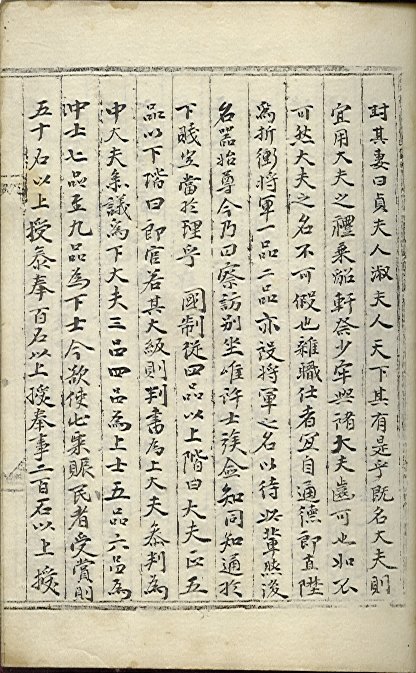 封其妻曰貞夫人淑夫人天下其有是乎既名大夫則
宜用大夫之禮乘軺軒祭少牢與諸大夫齒可也如不
可然大夫之名不可假也雜職仕者宜自通德郎直陞
爲折衝將軍一品二品亦設將軍之名以待此輩然後
名器始尊今乃曰察訪別坐唯許士族僉知同知通於
下賤豈當於理乎 國制從四品以上階曰大夫正五
品以下階曰郎官若其大級則判書爲上大夫參判爲
中大夫參議爲下大夫三品四品爲上士五品六品爲
中士七品至九品爲下士今欲使七柒賑民者受賞則
五十石以上授參奉百石以上授奉事二百石以上授